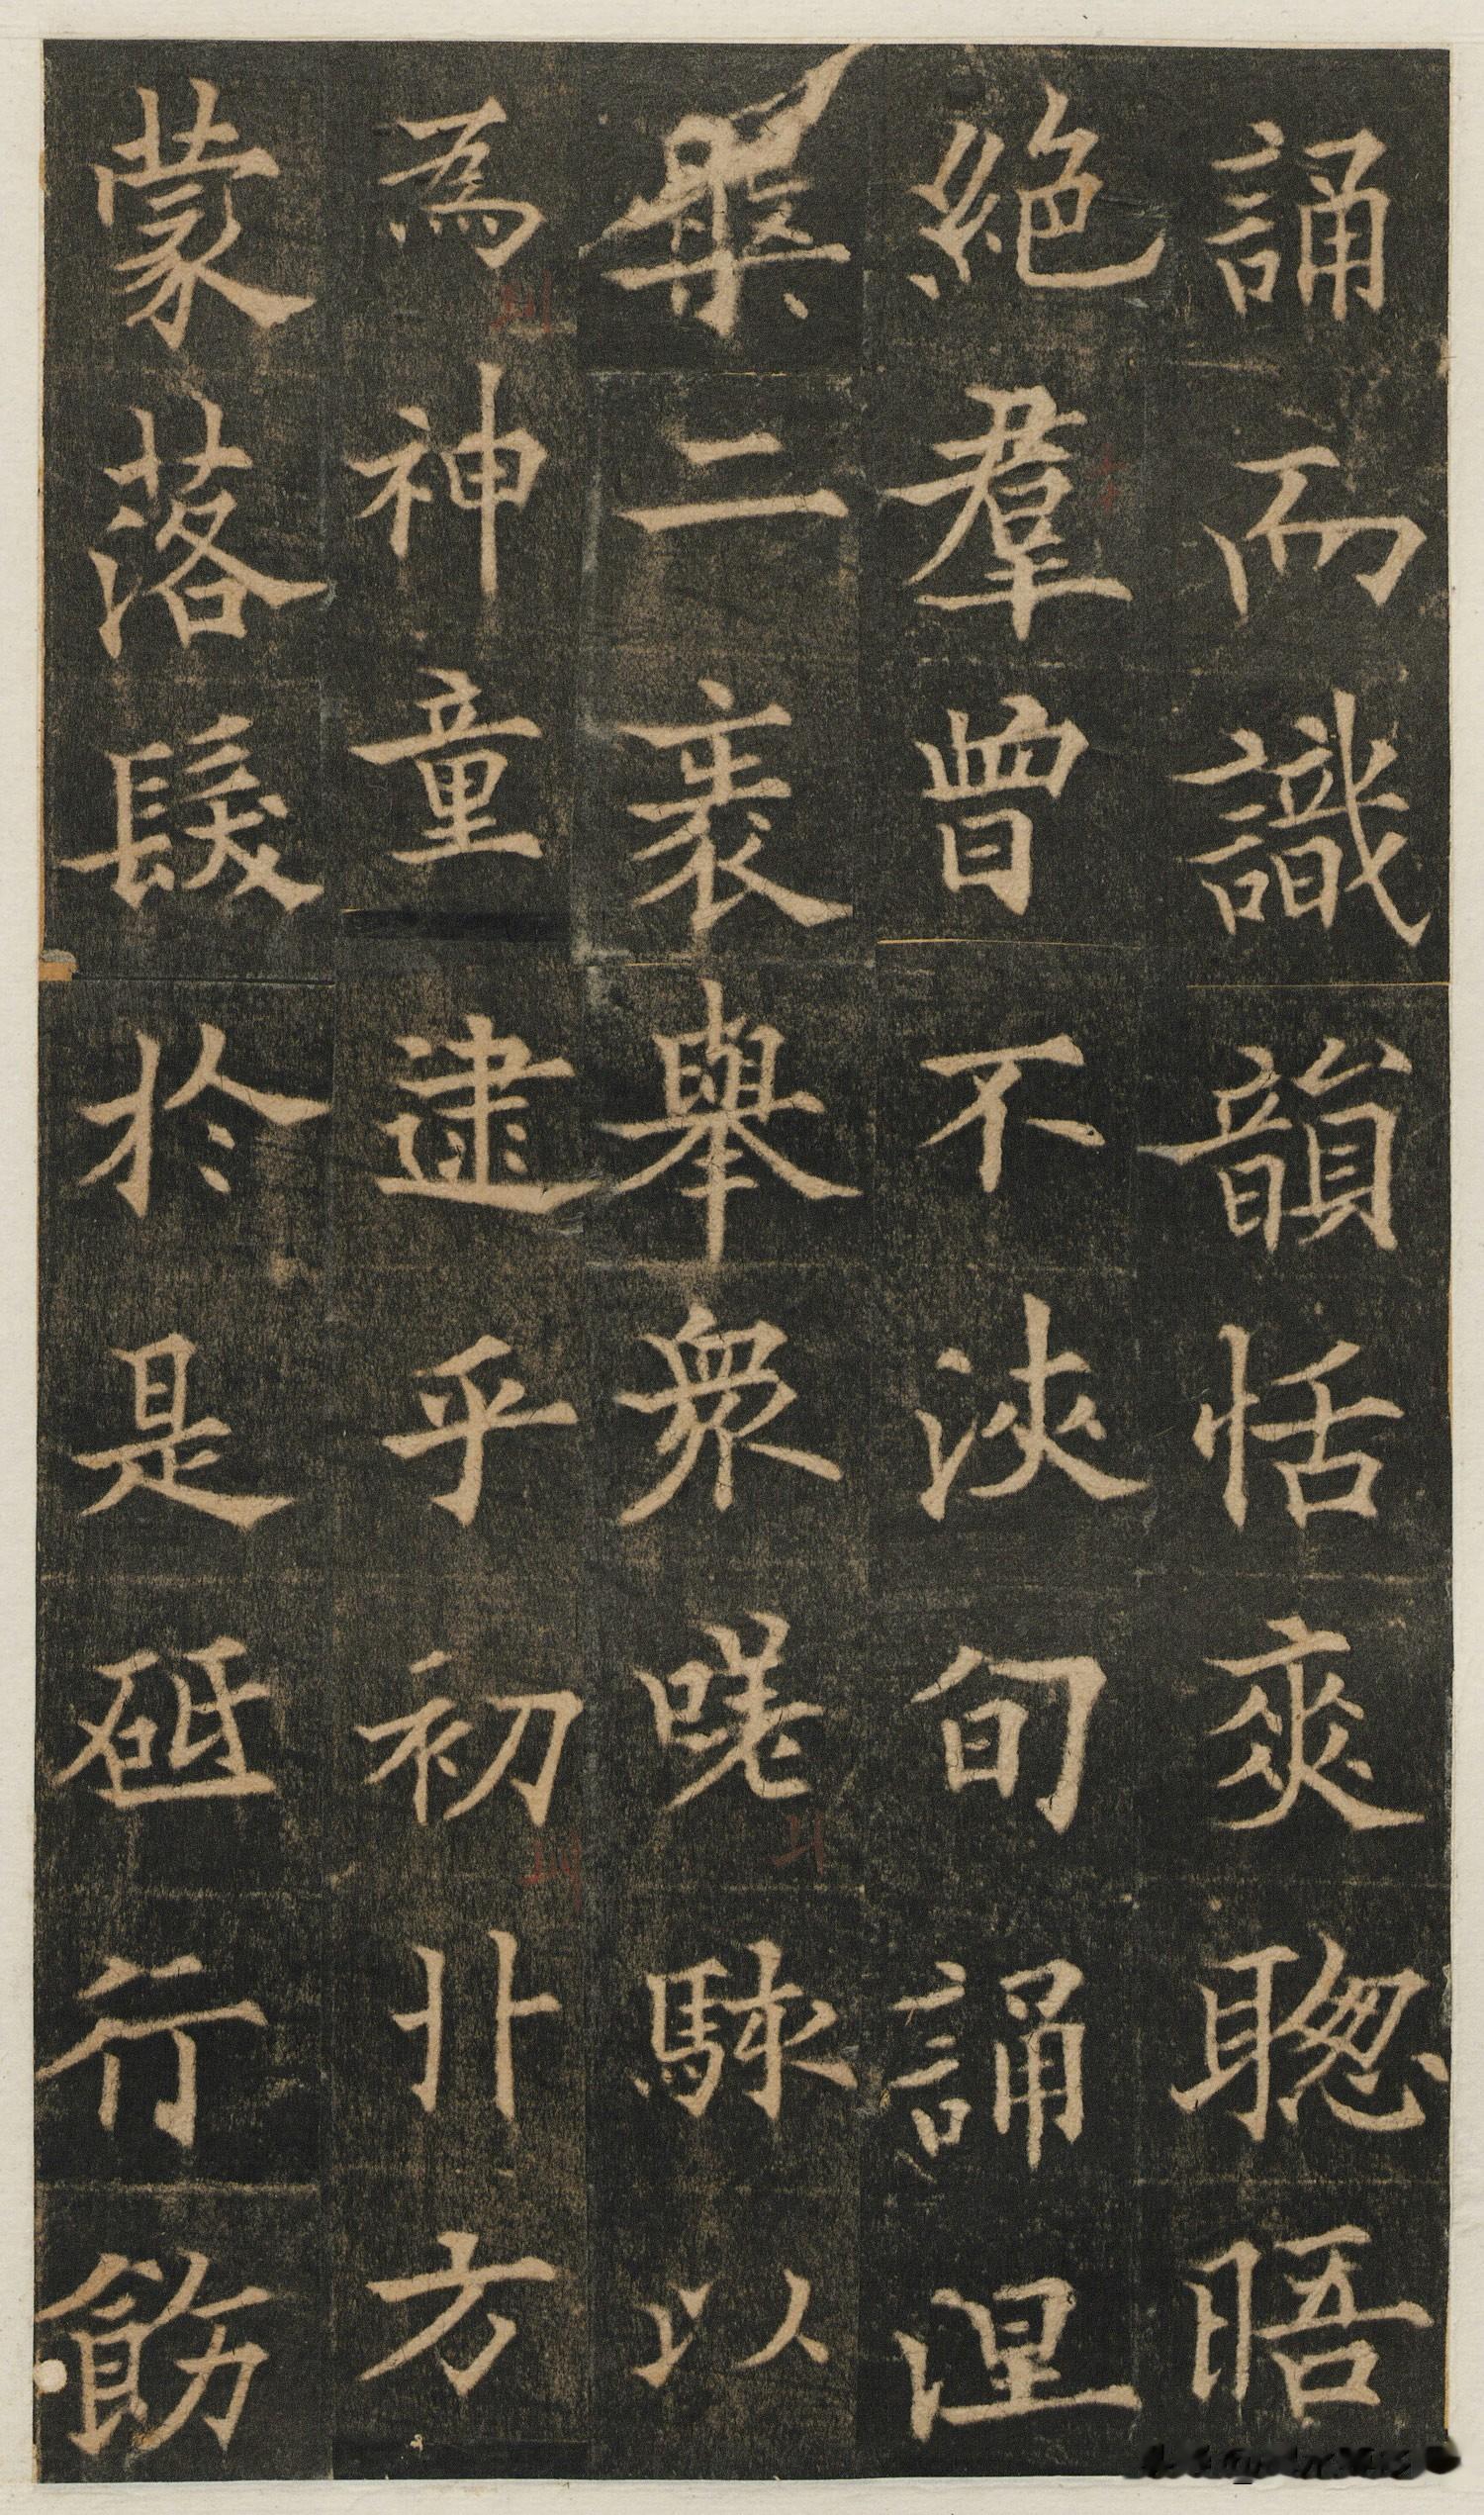 誦而識韻恬爽聦晤
絕羣曾不浹旬誦涅
槃二袠舉衆嗟駷以
為神童逮乎初丱方
蒙落髮於是砥行飭